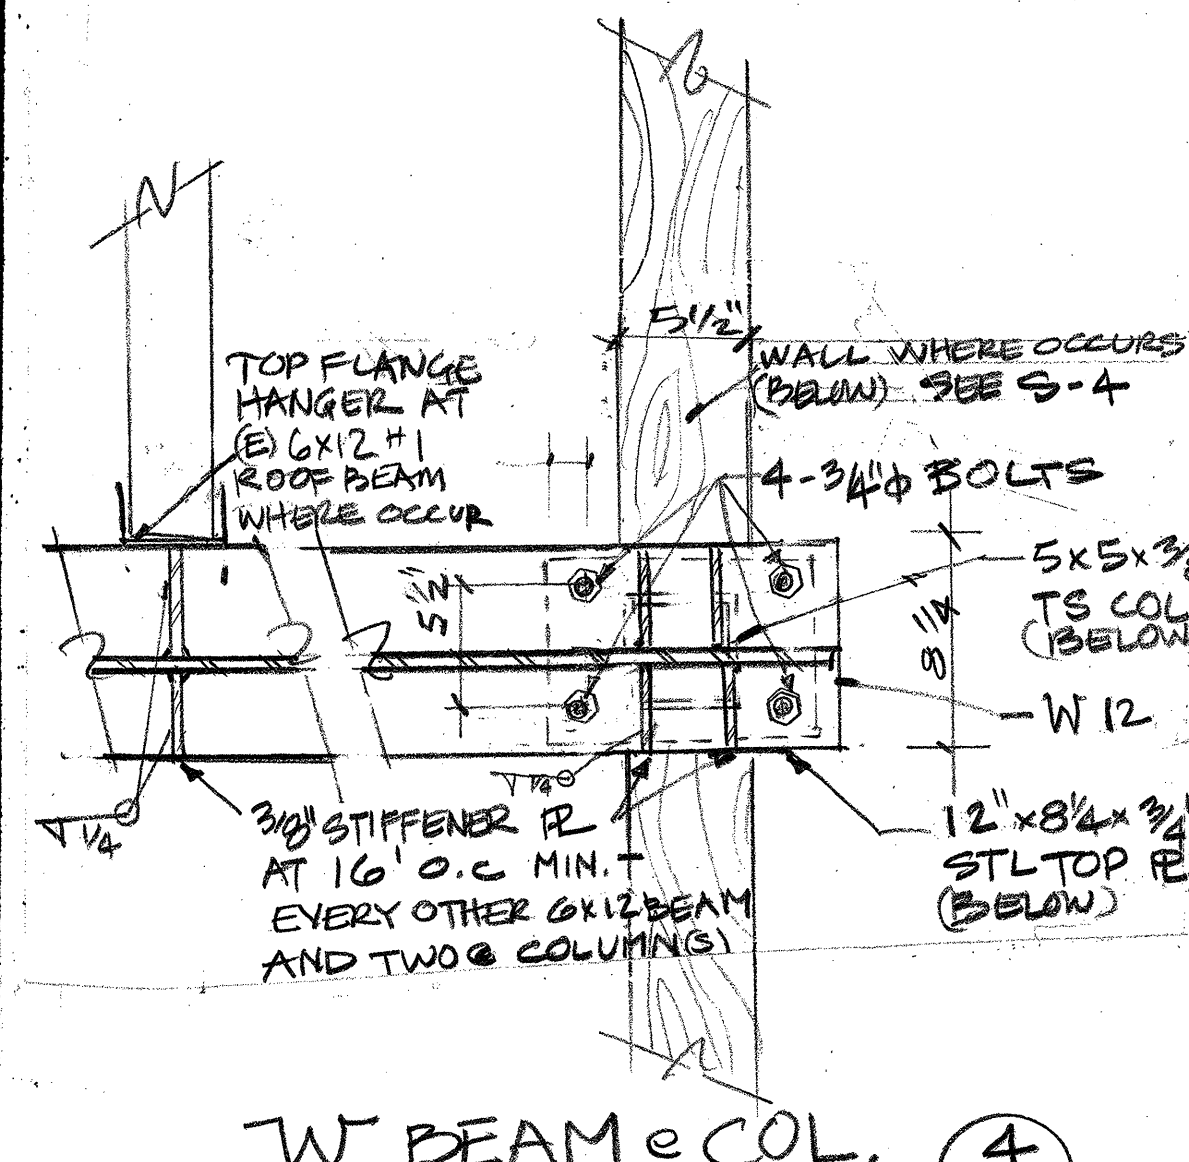 5 1/2"
TOP FLANGE
HANGER AT
(E) 6x12 #1
ROOF BEAM
WHERE OCCUR
WALL WHERE OCCURS
(BELOW) SEE S-4
4-3/4"φ BOLTS
5x5x3/
TS COL
(BELOW
8 1/4
W 12
1/4
1/4
3/8" STIFFENER PL
AT 16' O.C MIN. -
EVERY OTHER 6x12 BEAM
AND TWO @ COLUMN(S)
12" x 8 1/4 x 3/4
STL TOP PL
(BELOW)
W BEAM @ COL. 4